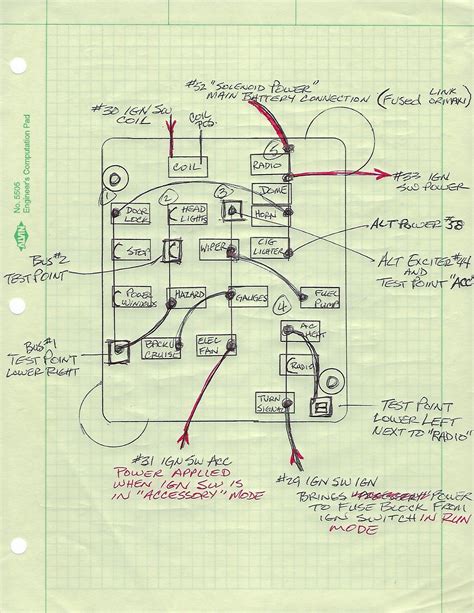 #52 "SOLENOID POWER"
MAIN BATTERY CONNECTION (FUSED LINK
OR MAXI)
#30 IGN SW
COIL
COIL
POS.
No. 5505
Engineer's Computation Pad
5
COIL
RADIO
#33 IGN
SW POWER
DOME
1
2
3
DOOR
LOCK
HEAD
LIGHTS
HORN
ALT POWER #38
BUS #2
TEST POINT
STOP
WIPER
CIG
LIGHTER
ALT EXCITER #44
AND
TEST POINT "ACC"
POWER
WINDOWS
HAZARD
GAUGES
4
FUEL
PUMP
BUS #1
TEST POINT
LOWER RIGHT
BACKU
CRUISE
ELEC
FAN
A/C
HEAT
RADIO
TURN
SIGNAL
TEST POINT
LOWER LEFT
NEXT TO "RADIO"
#31 IGN SW ACC
POWER APPLIED
WHEN IGN SW IS
IN "ACCESSORY" MODE
#29 IGN SW IGN
BRINGS POWER
TO FUSE BLOCK FROM
IGN SWITCH IN RUN
MODE